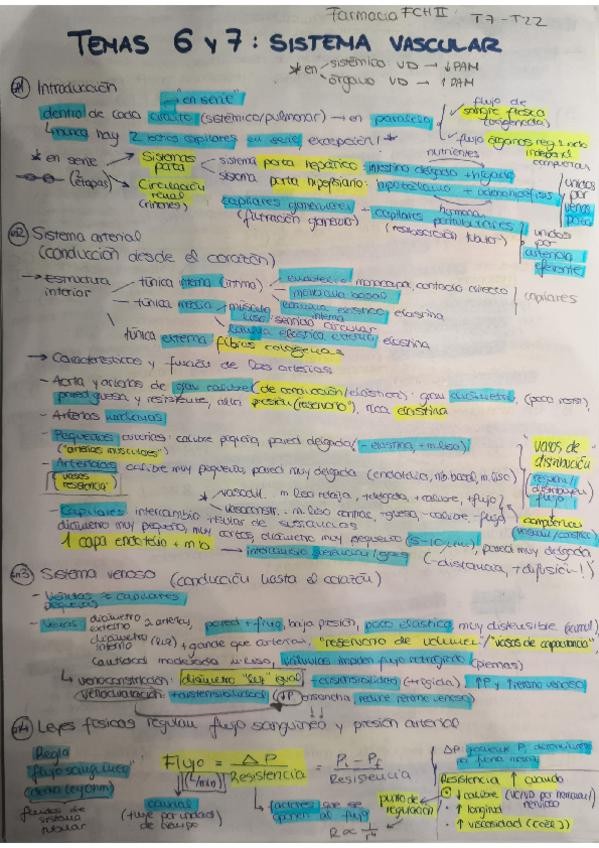 Farmacia FCH II T7 - T22
TEMAS 6 y 7: SISTEMA VASCULAR
* en sistémico VD → ↓PAM
órgano VD → ↑PAM
Introducción
"en serie"
dentro de cada circuito (sistémico/pulmonar) → en paralelo
✓ flujo de sangre fresca (oxigenada)
✓ flujo órganos reg
↳ nunca hay 2 lechos capilares en serie excepción! *
* en serie
(2 etapas)
Sistemas porta
sistema porta hepático: intestino delgado + hígado
nutrientes
sistema porta hipofisiario: hipotálamo + adenohipófisis
hormonas
unidos por vena porta
Circulación renal (riñones)
capilares glomerulares - capilares peritubulares
(filtración glomerular) (reabsorción tubular)
unidos por arteriola eferente
Sistema arterial
(conducción desde el corazón)
→ Estructura interior
túnica interna (íntima)
endotelio monocapa, contacto directo
membrana basal
capilares
túnica media
músculo liso: sentido circular
lámina elástica interna elastina
lámina elástica externa elastina
túnica externa fibras colágenas
→ Características y función de las arterias
- Aorta y arterias de gran calibre (de conducción/elásticas): gran diámetro, (poca resist),
pared gruesa y resistente, alta presión (reservorio"), rica elastina
- Arterias medianas
- Pequeñas arterias: calibre pequeño, pared delgada (- elastina, + m.liso)
("arterias musculares")
"vasos de distribución"
- Arteriolas calibre muy pequeño, pared muy delgada (endotelio, mb basal, m. liso)
"vasos resistencia"
* vasodil. m liso relaja, + delgada, + calibre, + flujo
vasoconstr. m liso contrae, - gruesa, - calibre, - flujo
- Capilares intercambio tisular de sustancias
diámetro muy pequeño, muy cortos, diámetro muy pequeño
1 capa endotelio + mb → intercambio
pared muy delgada
(- distancia, + difusión!)
Sistema venoso (conducción hasta el corazón)
- Vénulas ≈ capilares
pequeñas
- Venas diámetro externo ≈ arterias, pared + frag, baja presión, poco elástica, muy distensible
diámetro interno (luz) + grande que arterias, "reservorio de volumen"/"vasos de capacitancia",
cantidad moderada m liso, válvulas impiden flujo retrógrado (piernas)
↳ venoconstricción: diámetro "luz" igual, - distensibilidad (+ rígida) ↑P y ↑retorno venoso
venodilatación: + distensibilidad (↓P ensancha, reduce retorno venoso)
Leyes físicas regulan flujo sanguíneo y presión arterial
Regla "flujo sanguíneo" (ley Ohm)
fluidos de sistema tubular
Flujo = ΔP / Resistencia = Pi - Pf / Resistencia
(L/min)
caudal
(fluye por unidad de tiempo)
factores que se oponen al flujo
punto de regulación
R ∝ 1/r⁴
Resistencia ↑ cuando
↓ calibre (VC/VD por hormonal/nervioso)
• ↑ longitud
• ↑ viscosidad